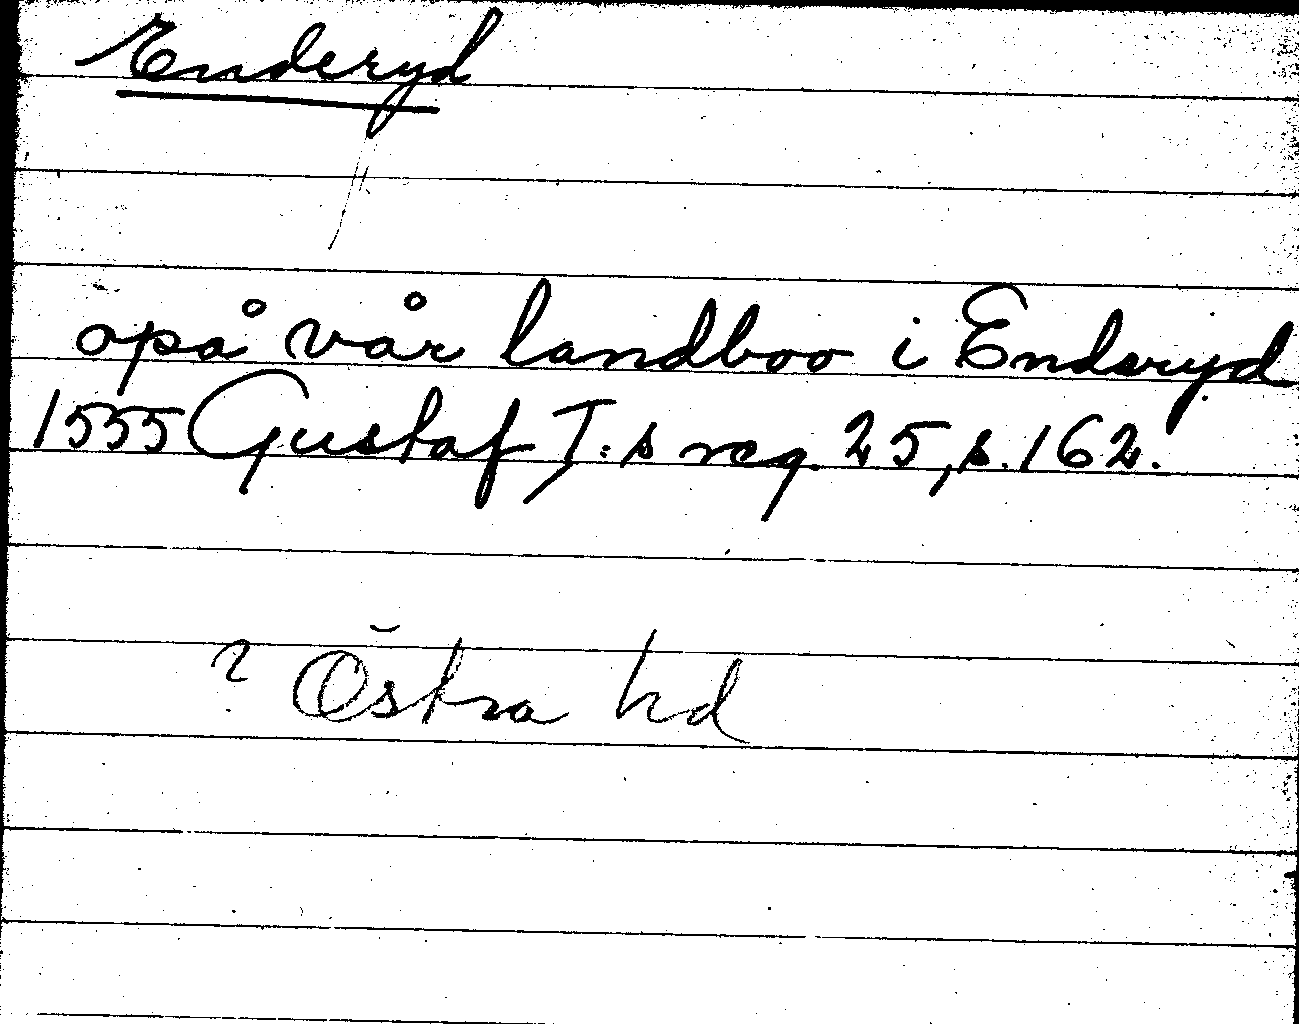 Enderyd
opå vår landboo i Enderyd
1555 Gustaf I:s reg. 25, s. 162.
? Östra hd